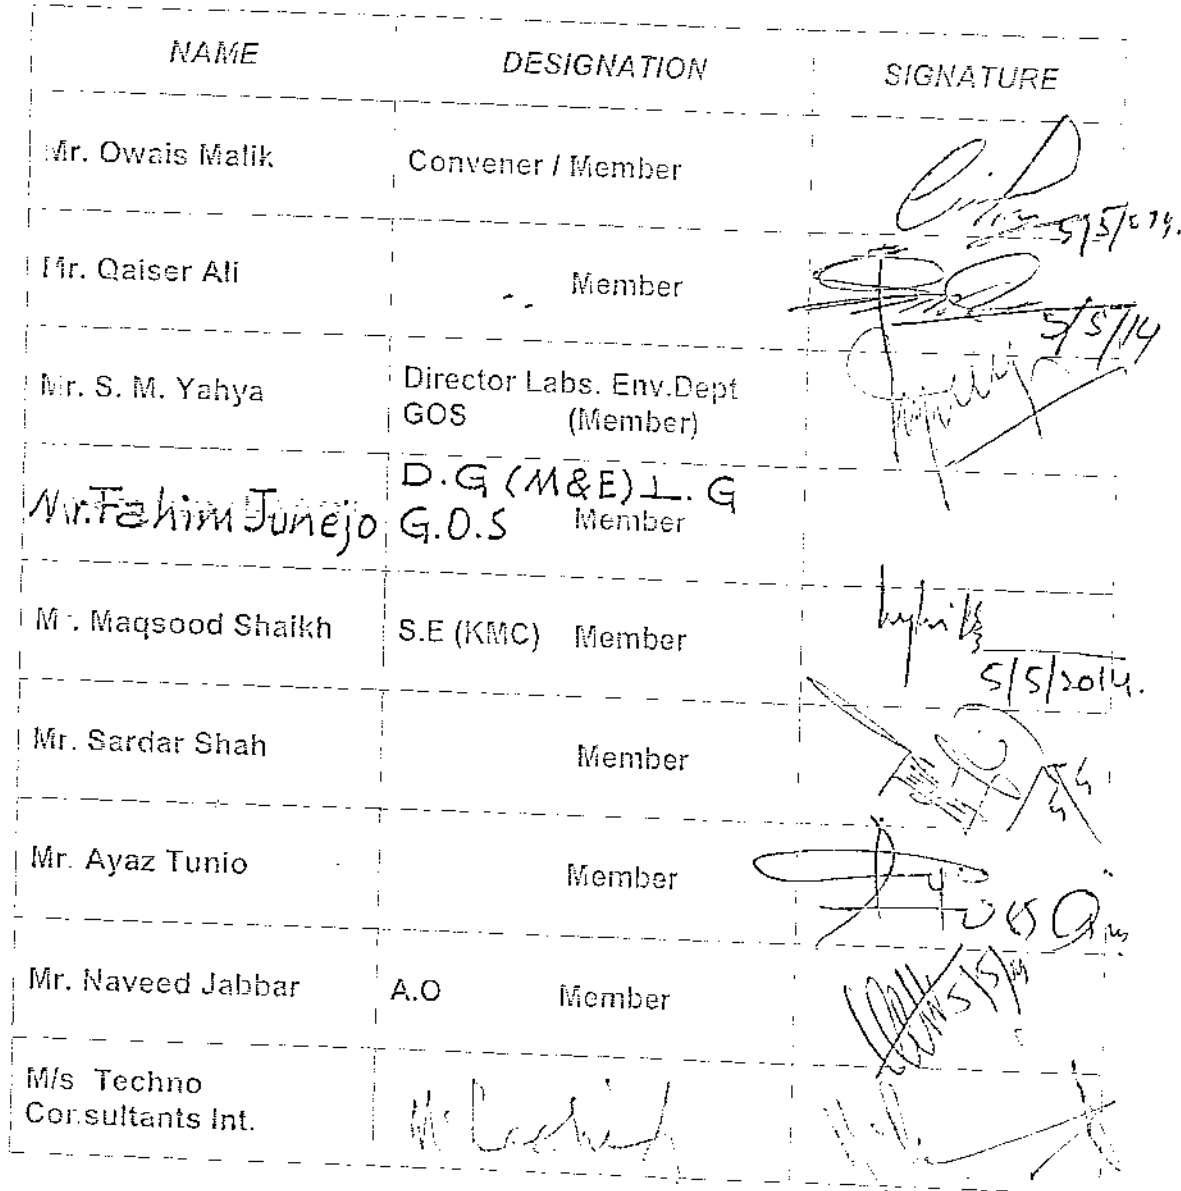 NAME DESIGNATION SIGNATURE
Mr. Owais Malik Convener / Member
5/5/014.
Mr. Qaiser Ali Member
5/5/14
Mr. S. M. Yahya Director Labs. Env.Dept
GOS (Member)
D.G (M&E) L.G
Mr. Fahim Junejo G.O.S Member
Mr. Maqsood Shaikh S.E (KMC) Member
5/5/2014.
Mr. Sardar Shah Member
Mr. Ayaz Tunio Member
Mr. Naveed Jabbar A.O Member
5/5/14
M/s Techno
Consultants Int.